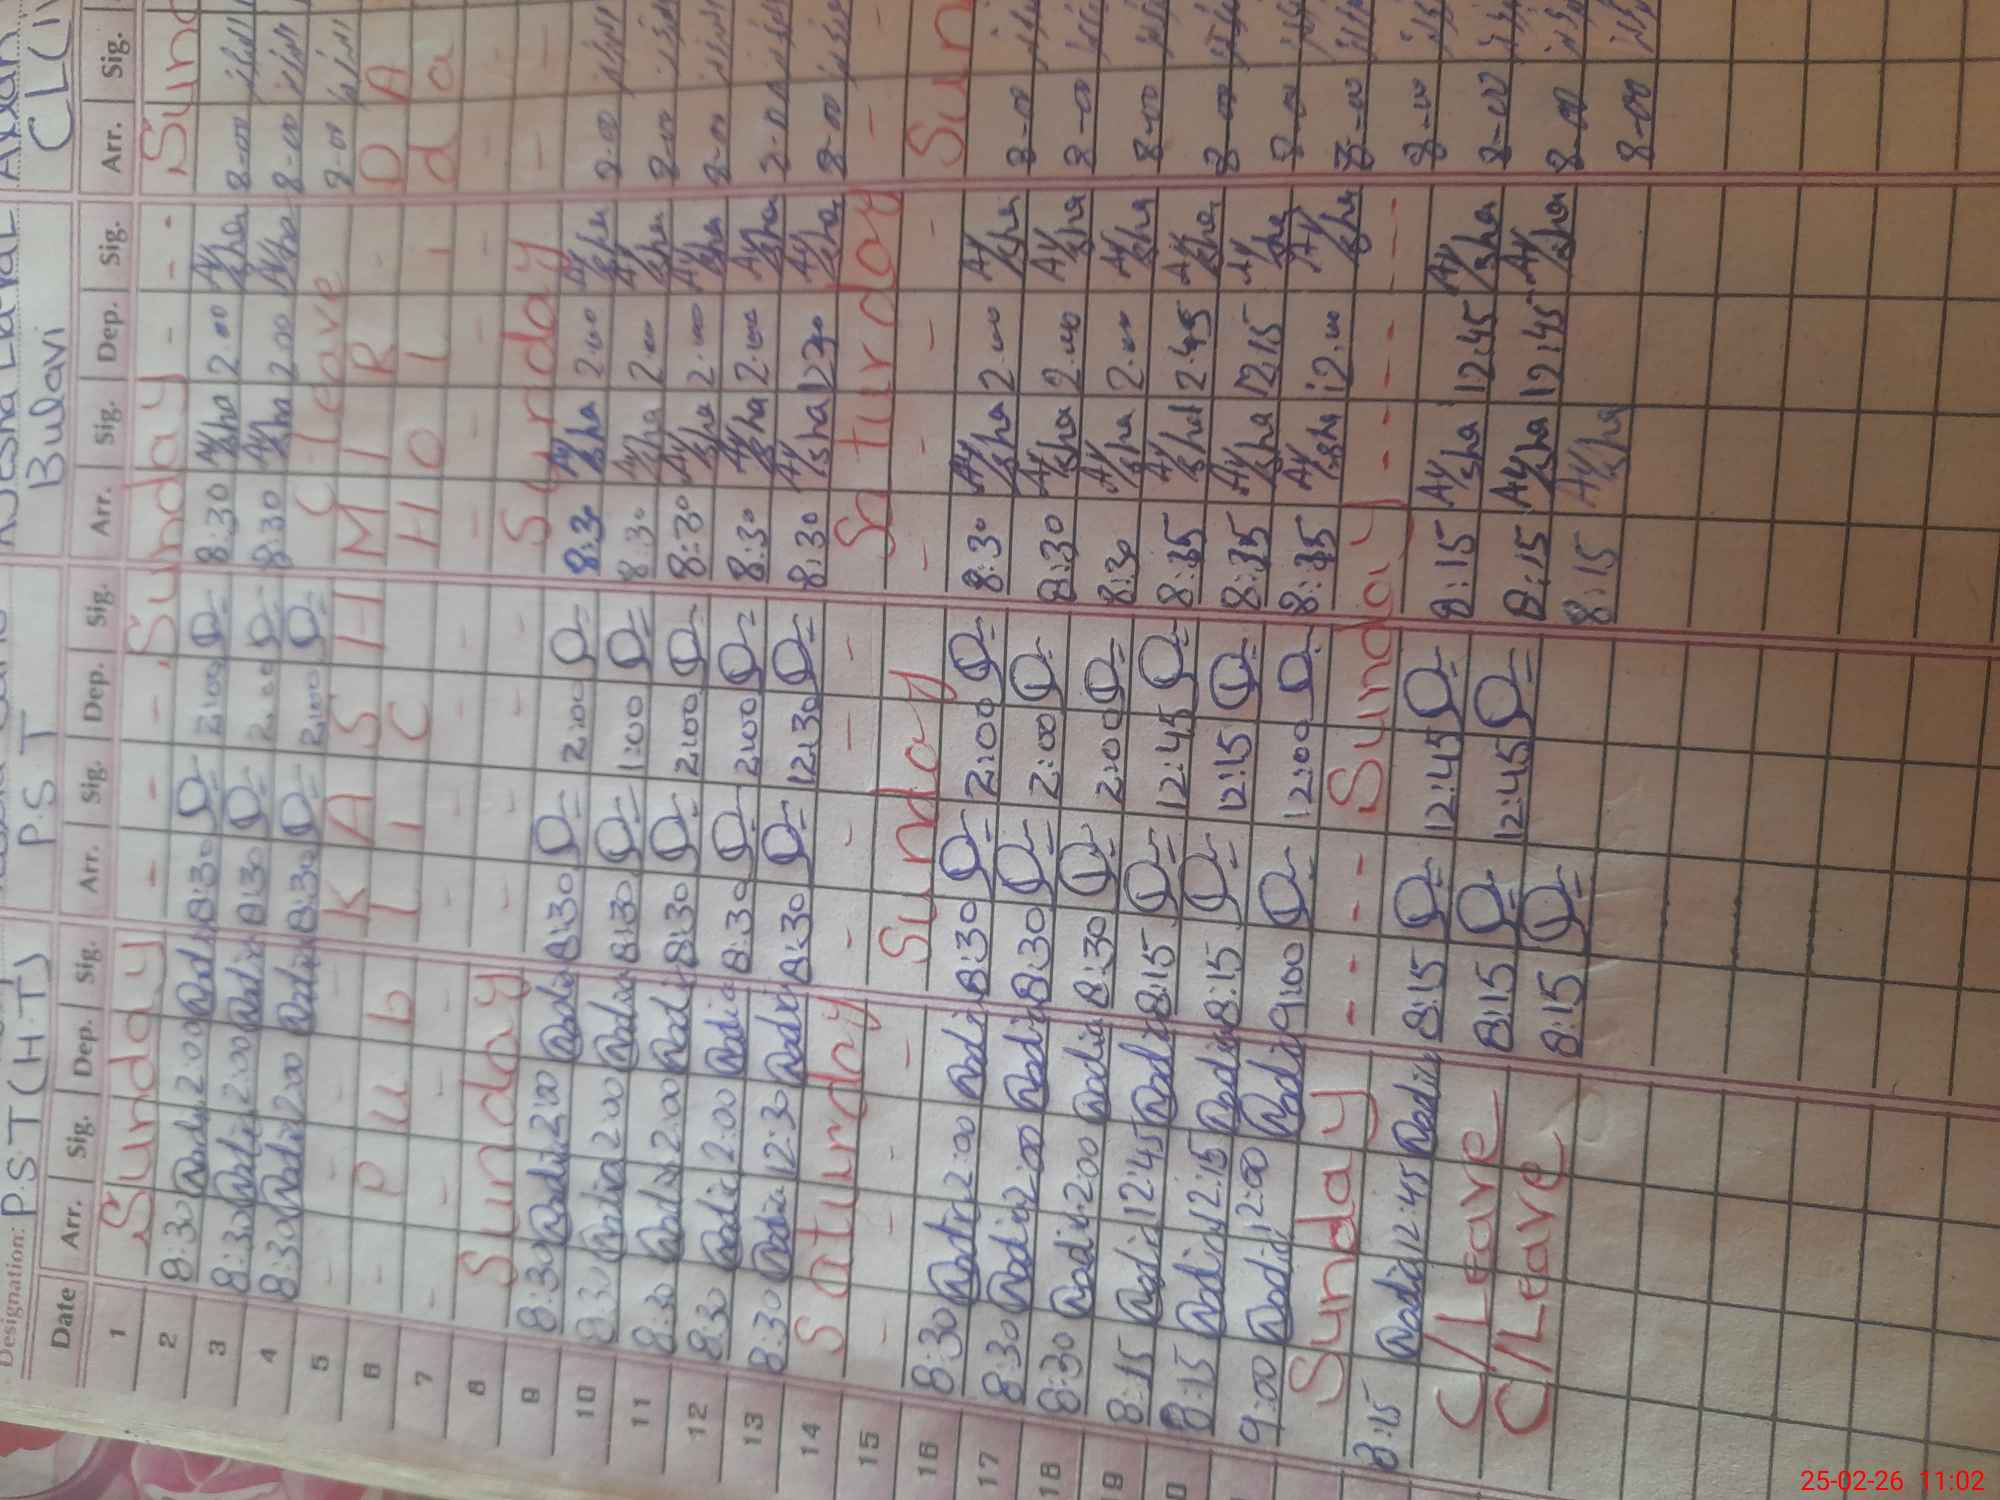 Designation: P.S.T (H.T) P.S.T Bulavi CL(
Date Arr. Sig. Dep. Sig. Arr. Sig. Dep. Sig. Arr. Sig. Dep. Sig. Arr. Sig.
1 Sunday - - - Sunday - - - Sun
2 8:30 Nadia 2:00 Nadia 8:30 2:00 8:30 Aysha 2:00 Aysha 8-00
3 8:30 Nadia 2:00 Nadia 8:30 2:00 8:30 Aysha 2:00 Aysha 8-00
4 8:30 Nadia 2:00 Nadia 8:30 2:00 C leave 8-00
5 - - - K A S H M I R - D A
6 - P u b L I C H O L I d a
7 - - - - - - - - -
8 Sunday - - - Sunday - -
9 8:30 Nadia 2:00 Nadia 8:30 2:00 8:30 Aysha 2:00 Aysha 8-00
10 8:30 Nadia 2:00 Nadia 8:30 1:00 8:30 Aysha 2:00 Aysha 8-00
11 8:30 Nadia 2:00 Nadia 8:30 2:00 8:30 Aysha 2:00 Aysha 8-00
12 8:30 Nadia 2:00 Nadia 8:30 2:00 8:30 Aysha 2:00 Aysha 8-00
13 8:30 Nadia 12:30 Nadia 8:30 12:30 8:30 Aysha 12:30 Aysha 8-00
14 Saturday - - - Saturday -
15 - - - - Sunday - - - Sun
16 8:30 Nadia 2:00 Nadia 8:30 2:00 8:30 Aysha 2:00 Aysha 8-00
17 8:30 Nadia 2:00 Nadia 8:30 2:00 8:30 Aysha 2:00 Aysha 8-00
18 8:30 Nadia 2:00 Nadia 8:30 2:00 8:30 Aysha 2:00 Aysha 8-00
19 8:15 Nadia 12:45 Nadia 8:15 12:45 Aysha 12:45 Aysha 8-00
8:15 Nadia 12:15 Nadia 8:15 12:15 Aysha 12:15 Aysha 8-00
9:00 Nadia 12:00 Nadia 9:00 12:00 Aysha 12:00 Aysha 8-00
Sunday - - - Sunday - - - 8-00
8:15 Nadia 12:45 Nadia 8:15 12:45 8:15 Aysha 12:45 Aysha 8-00
C/Leave 8:15 12:45 8:15 Aysha 12:45 Aysha 8-00
C/Leave 8:15 8:15 Aysha 8-00
25-02-26 11:02